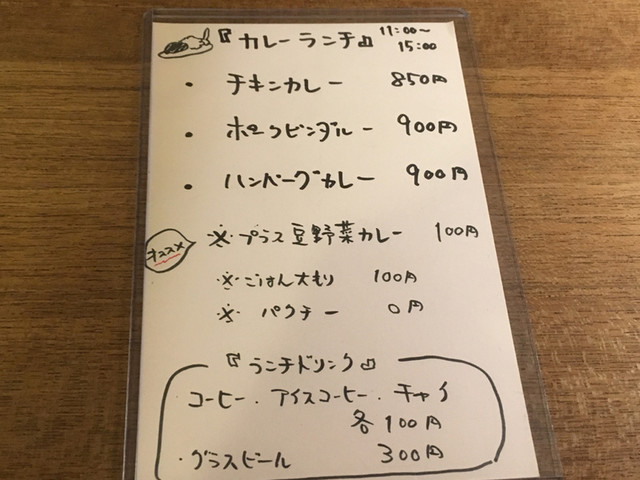 『カレーランチ』 11:00～
15:00
・ チキンカレー 850円
・ ポークビンダルー 900円
・ ハンバーグカレー 900円
オススメ ※プラス豆野菜カレー 100円
※ごはん大もり 100円
※ パクチー 0円
『ランチドリンク』
コーヒー．アイスコーヒー．チャイ
各100円
・グラスビール 300円